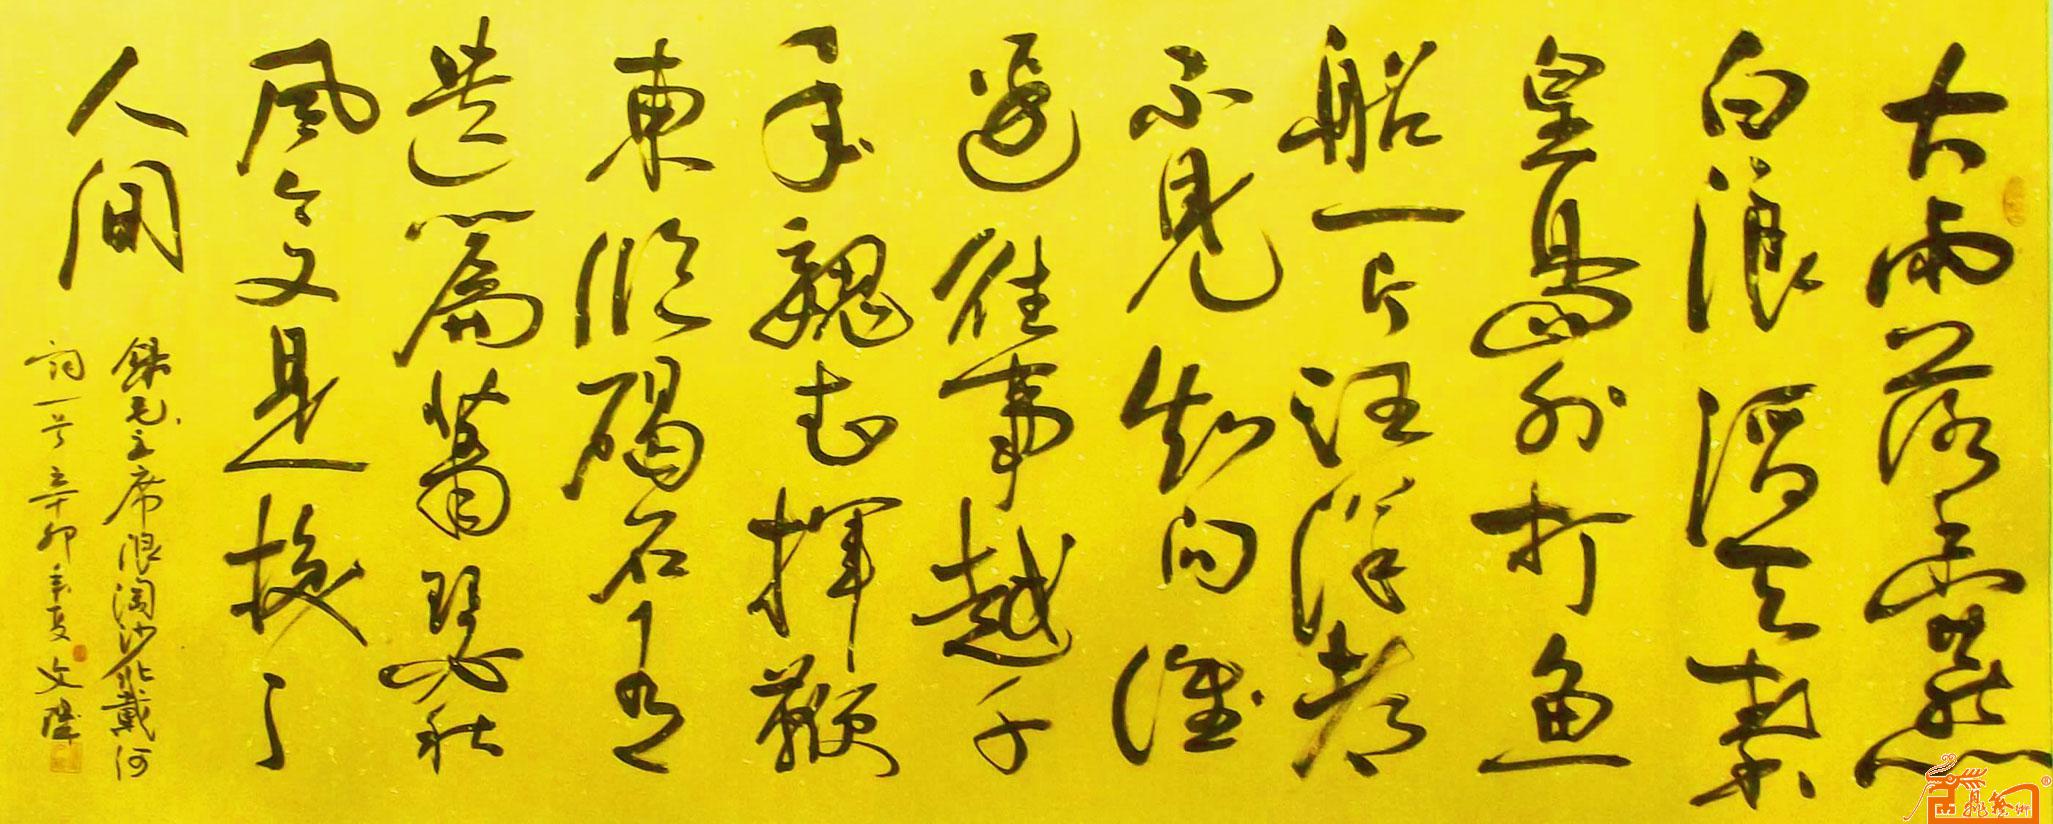 大雨落幽燕
白浪滔天秦
皇島外打鱼
船一片汪洋都
不見知向誰
邊往事越千
年魏武揮鞭
東臨碣石有
遺篇蕭瑟秋
風今又是換了
人间
錄毛主席浪淘沙北戴河
詞一首辛卯年夏文